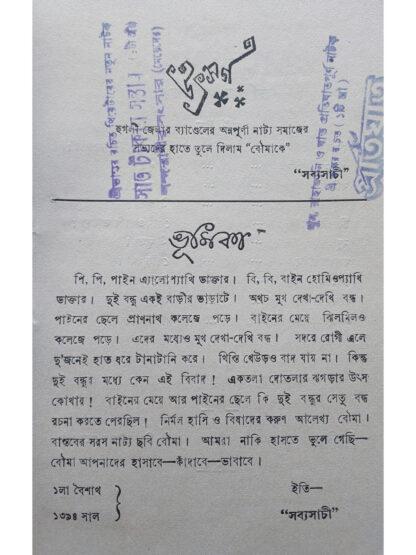 উৎসর্গ
হুগলী জেলার ব্যাণ্ডেলের অন্নপূর্ণা নাট্য সমাজের
হাতে তুলে দিলাম “বৌমাকে”
“সব্যসাচী”
ভূমিকা
পি, পি, পাইন এ্যালোপ্যাথি ডাক্তার। বি, বি, বাইন হোমিওপ্যাথি
ডাক্তার। দুই বন্ধু একই বাড়ীর ভাড়াটে। অথচ মুখ দেখা-দেখি বন্ধ।
পাইনের ছেলে প্রাণনাথ কলেজে পড়ে। বাইনের মেয়ে ঝিলমিলও
কলেজে পড়ে। এদের মধ্যেও মুখ দেখা-দেখি বন্ধ। সদরে রোগী এলে
দু'জনেই হাত ধরে টানাটানি করে। খিস্তি খেউড়ও বাদ যায় না। কিন্তু
দুই বন্ধুর মধ্যে কেন এই বিবাদ! একতলা দোতলার ঝগড়ার উৎস
কোথায়! বাইনের মেয়ে আর পাইনের ছেলে কি দুই বন্ধুর সেতু বন্ধ
রচনা করতে পেরেছিল! নির্মল হাসি ও বিষাদের করুণ আলেখ্য বৌমা।
বাস্তবের সরস নাট্য ছবি বৌমা। আমরা নাকি হাসতে ভুলে গেছি—
বৌমা আপনাদের হাসাবে—কাঁদাবে—ভাবাবে।
১লা বৈশাখ
১৩৯৪ সাল
ইতি—
“সব্যসাচী”